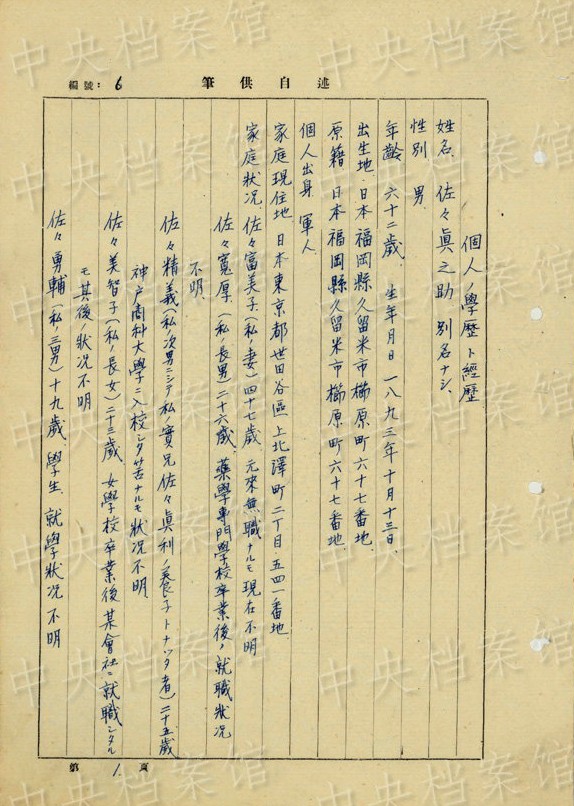 編號：6
筆供自述
個人ノ學歷ト經歷
姓名、佐々眞之助 別名ナシ、
性別 男、
年齡 六十二歲、生年月日 一八九三年十月十三日、
出生地、日本福岡縣久留米市櫛原町六十七番地、
原籍 日本福岡縣久留米市櫛原町六十七番地、
個人出身、軍人
家庭現住地 日本東京都世田谷區上北澤町二丁目、五四一番地
家庭狀况、佐々富美子(私ノ妻)四十七歲 元來無職ナルモ現在不明
佐々寬厚、(私ノ長男)二十六歲、藥學專門學校卒業後ノ就職狀况
不明、
佐々精義(私ノ次男ニシテ私ノ實兄佐々眞利ノ養子トナツタ者)二十五歲
神戶商科大學ニ入校シタ筈ナルモ狀况不明、
佐々美智子(私ノ長女)二十三歲、女學校卒業後某會社ニ就職シタル
モ其後ノ狀况不明
佐々勇輔(私ノ三男)十九歲、學生、就學狀况不明
第 1 頁
中央档案馆